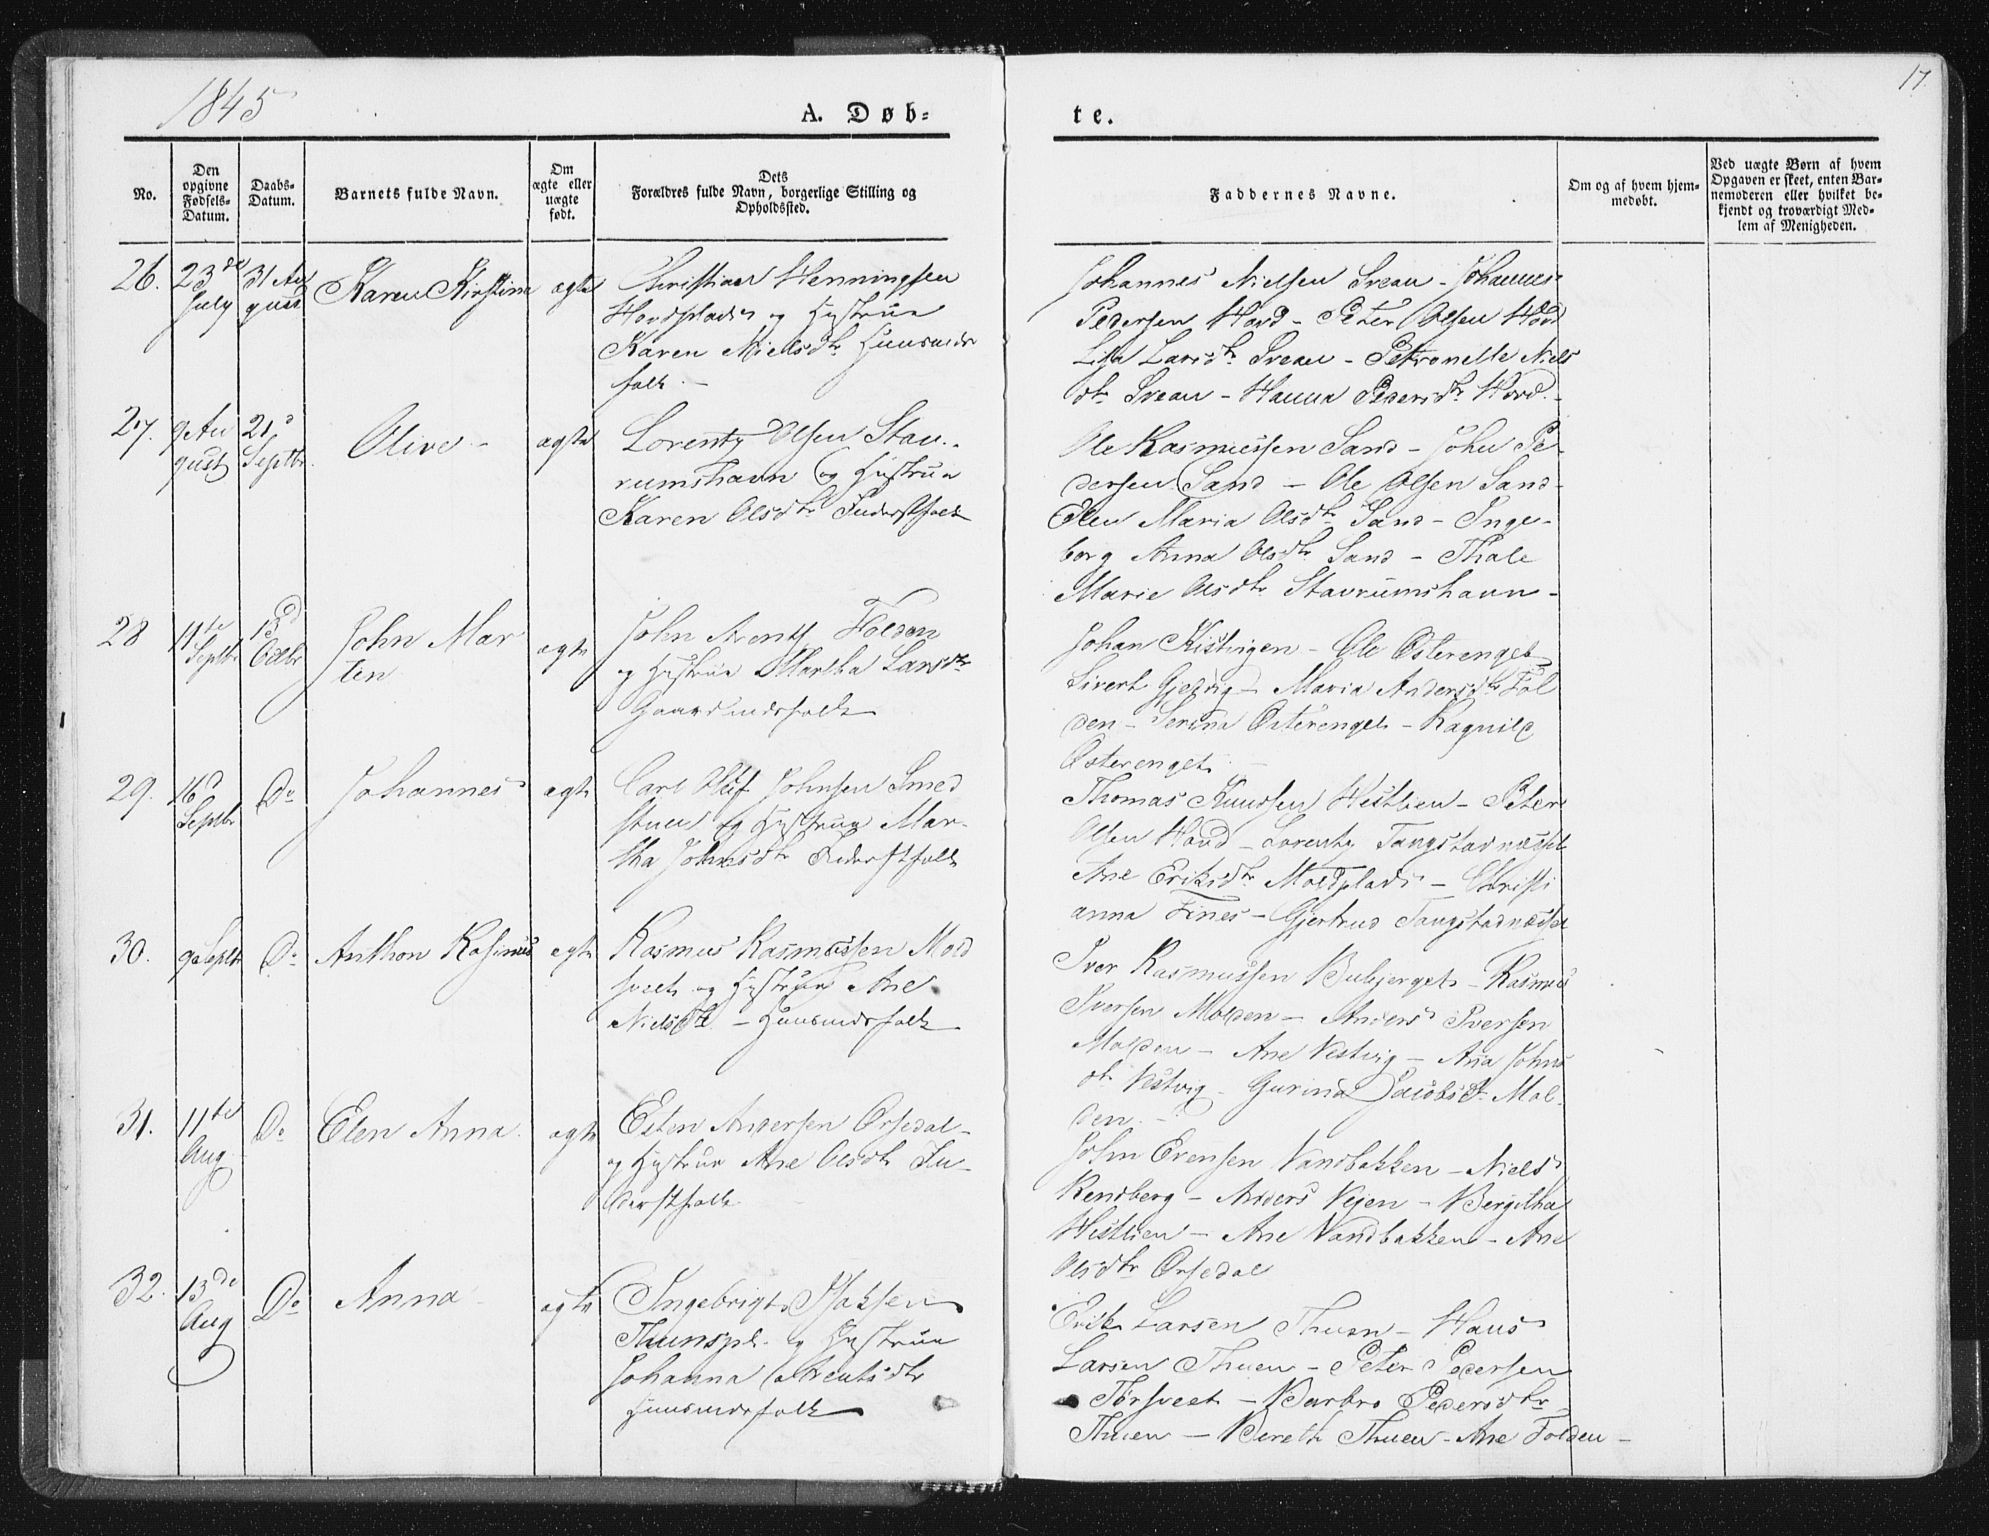 1845
17
A. Døb-
te.
No.
Den opgivne Fødsels-Datum.
Daabs-Datum.
Barnets fulde Navn.
Om ægte eller uægte født.
Dets Forældres fulde Navn, borgerlige Stilling og Opholdssted.
Faddernes Navne.
Om og af hvem hjem-medøbt.
Ved uægte Børn af hvem Opgaven er skeet, enten Bar-nemoderen eller hvilket be-kjendt og troværdigt Med-lem af Menigheden.
26. 23de July
31 August
Karen Kirstine
ægte
Christian Henningsen
Hovdsplads og Hustrue
Karen Nielsdtr Huusmds
folk. -
Johannes Nielsen Svean - Johannes
Pedersen Hovd - Peter Olsen Hovd
Larsdtr Svean - Petronelle Niels
dtr Svean - Hanna Pedersdtr Hovd. -
27. 9 August
21d Septbr.
Olive -
ægte
Lorentz Olsen Stau-
rumshavn og Hustrue
Karen Olsdtr Inderstfolk
Ole Rasmussen Sand - John Pe-
dersen Sand - Ole Olsen Sand -
Elen Maria Olsdtr Sand - Inge-
borg Anna Olsdtr Sand - Thale
Marie Olsdtr Stavrumshavn -
28 11te Septbr
Octbr
John Mar
tin
ægte
John Arentz Folden
og Hustrue Martha Larsdtr
Gaardmdsfolk
Johan Kistvigen - Ole Østerenget
Sivert Gjedvig - Maria Andersdtr Fol
den - Serina Østerenget - Ragnild
Østerenget. -
29. 16d Septbr
Do
Johannes
ægte
Carl Oluf Johnsen Smed
stuen og Hustrue Mar-
tha Johnsdtr Inderstfolk
Thomas Knudsen Westlien - Peter
Olsen Hovd - Lorentz Tangstadnæsset
Ane Eriksdtr Moldplads - Christi
anna Fines - Gjertrud Tangstadnæsset
30. 9 Septbr
Do
Anthon Rasimus
ægte
Rasmus Rasmussen Mold
sveet og Hustrue Ane
Nielsdtr - Huusmdsfolk
Iver Rasmussen Bubjerget - Rasmus
Iversen Molden - Anders Iversen
Molden - Ane Vestvig - Ana Johns
dtr Vestvig - Gurina Jacobsdtr Mol-
den. -
31. 11te Aug
Do
Elen Anna.
ægte
Esten Andersen Orsedal -
og Hustrue Ane Olsdtr In-
derstfolk
John Evensen Vandbakken - Niels
Rendberg - Anders Vejen - Bergitha
Westlien - Ane Vandbakken - Ane
Olsdtr Orsedal
32. 13de Aug
Do
Anna -
ægte
Ingebrigt Isaksen
Thunspl. og Hustrue
Johanna Arentsdtr
Huusmdsfolk
Erik Larsen Thuen - Hans
Larsen Thuen - Peter Pedersen
Torsveet - Barbro Pedersdtr
Thuen - Bereth Thuen - Ane Folden -